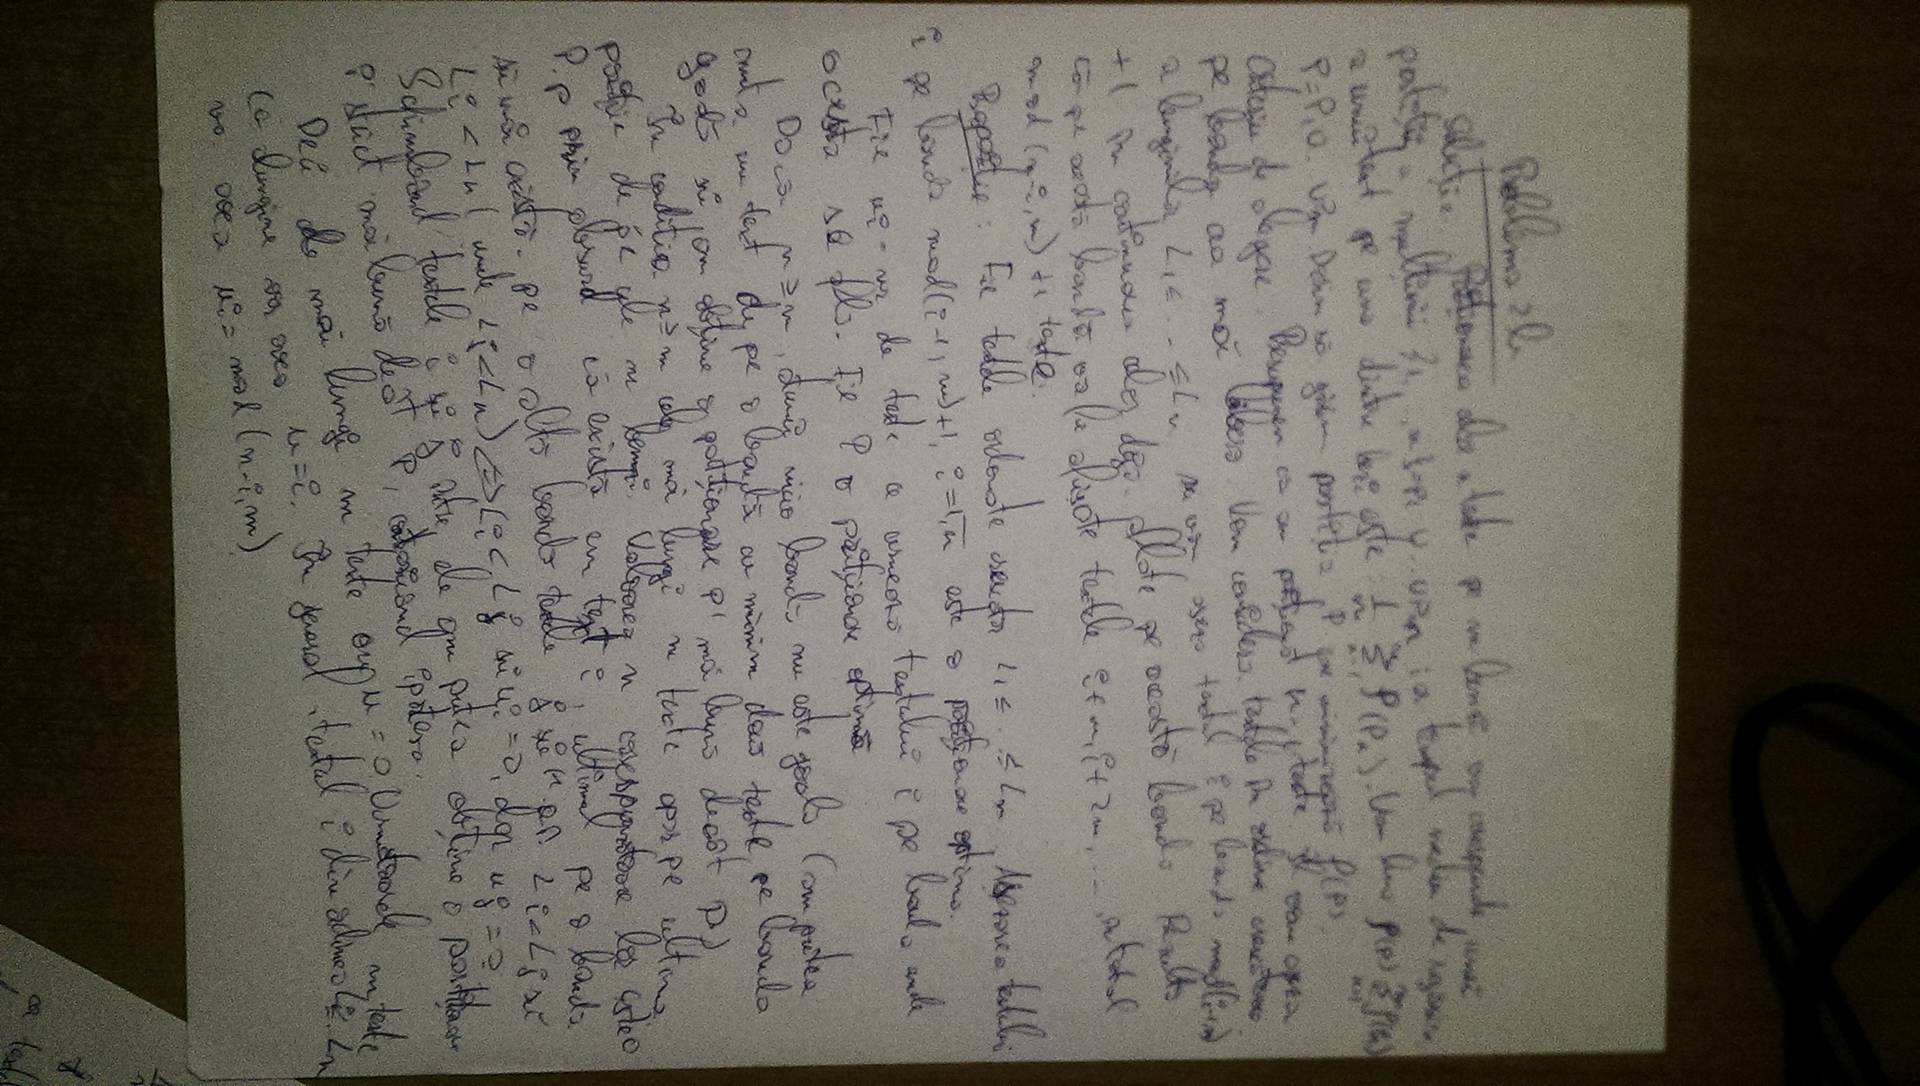 Problema 2b
Soluție. Poziționarea celor n texte pe m benzi va corespunde unei
partiții a mulțimii {1, ..., n} = P1 U ... U Pm, iar timpul mediu de
a unui text pe una dintre benzi este: 1/n Σ f(Pk). Vom
P = P1 U. Vom să găsim partiția P ce minimizează f(P).
Criteriu de alegere. Presupunem că am poziționat texte. Îl vom așeza
pe banda cea mai liberă. Vom considera textele în ordine crescătoare
a lungimilor L1 ≤ ... ≤ Ln și vom așeza textul i pe banda mod(i-1,m)
+1 în continuarea celor deja aflate pe această bandă. Rezultă
că pe această bandă vor fi așezate textele i+m, i+2m, ... în total
mod (n-i, m) +1 texte.
Propoziție: Fie textele ordonate crescător L1 ≤ ... ≤ Ln. Așezarea textului
i pe banda mod(i-1, m)+1, i=1,n este o poziționare optimă.
Fie ui = nr de texte ce urmează textului i pe banda unde
acesta se află. Fie P o poziționare optimă
Dacă n ≥ m, atunci nicio bandă nu este goală (am putea
muta un text de pe o bandă cu minim două texte pe banda
goală și am obține o poziționare P' mai bună decât P)
În condiția n ≥ m cele mai lungi m texte apar pe ultima
poziție de pe cele m benzi. Valoarea u corespunzătoare lor este 0
P.p prin absurd că există un text i, ultimul pe o bandă
și mai există pe o altă bandă textele j și k a.î. Li < Lj și
Li < Lk (unde Lj < Lk) <=> Li < Lj și ui = 0, dar uj =
Schimbând textele i și j între ele am putea obține o poziționare
P' strict mai bună decât P, contrazicând ipoteza.
Deci cele mai lungi m texte au u = 0. Următoarele m texte
ca lungime vor avea u = În general, textul i din ordinea L1 ≤ .. Ln
va avea ui = mod (n-i, m)